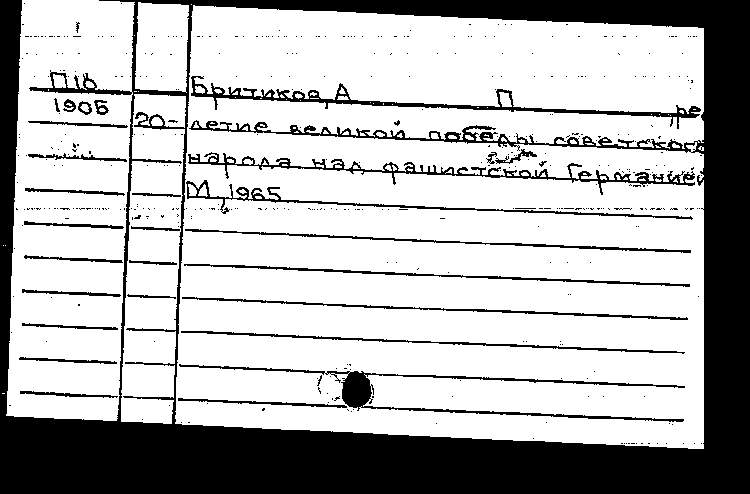 П16 Бритиков, А П ,ре
1905 20-летие великой победы советского
народа над фашистской Германией
М., 1965